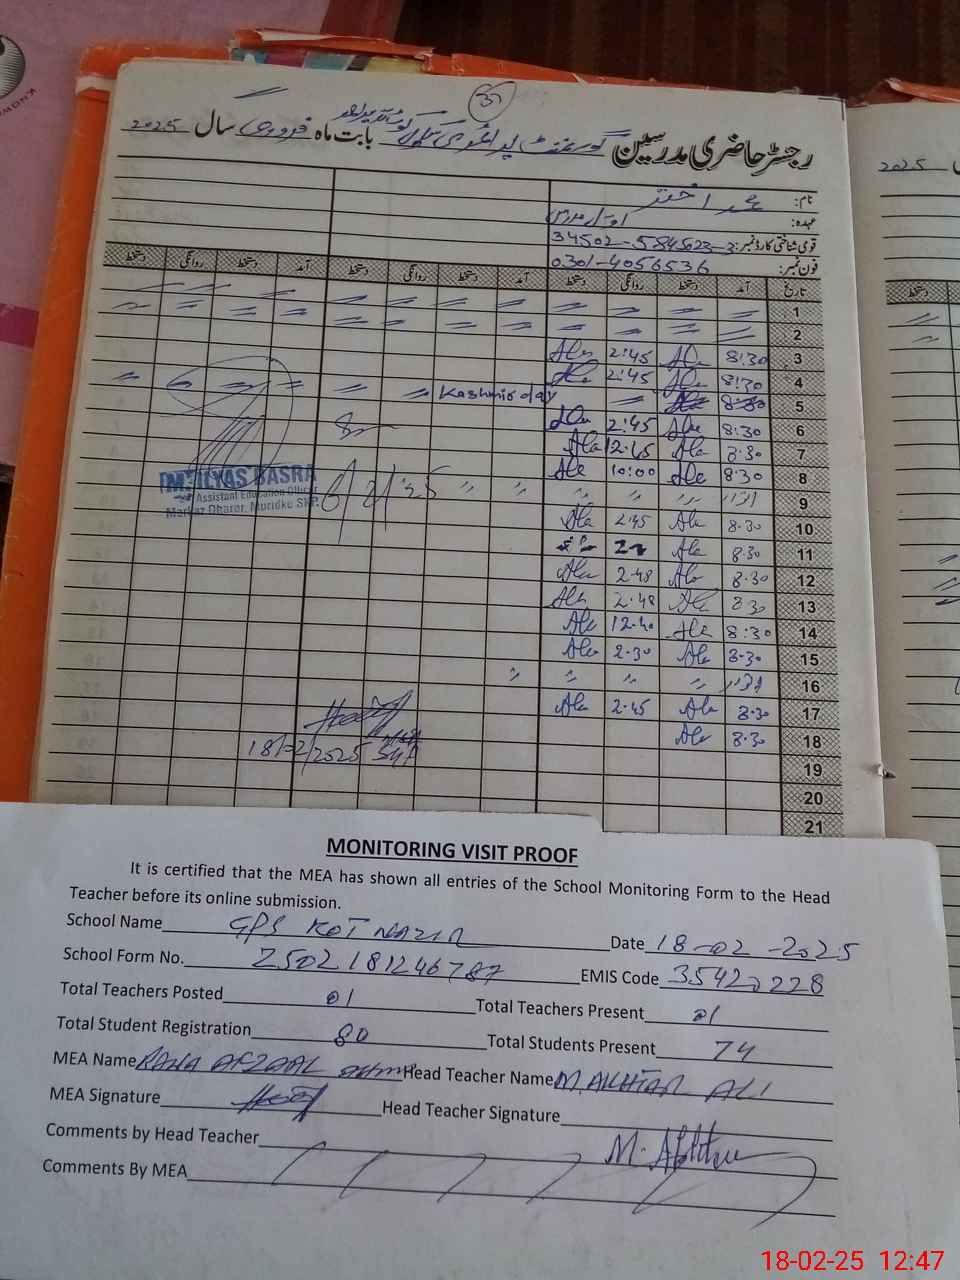 37
رجسٹر حاضری مدرسین گورنمنٹ پرائمری سکول کوٹ نذیر بابت ماہ فروری سال 2025
نام: محمد اختر
عہدہ:
قومی شناختی کارڈ نمبر: 34502-584523-3
فون نمبر: 0301-4056536
تاریخ آمد دستخط روانگی دستخط آمد دستخط روانگی دستخط آمد دستخط روانگی دستخط
1
2
3 8:30 Ala 2:45 Ala
4 8:30 Ala 2:45 Ala
5 8:30 Kashmir day
6 8:30 Ala 2:45 Ala
7 8.30 Ala 12.45 Ala
8 8:30 Ala 10:00 Ala
9 اتوار
10 8.30 Ala 2.45 Ala
11 8.30 Ala
12 8.30 Ala 2.48 Ala
13 8.30 Ala 2.48 Ala
14 8:30 Ala 12.40 Ala
15 8.30 Ala 2.30 Ala
16 اتوار
17 8.30 Ala 2.45 Ala
18 8.30 Ala
19
20
21
M. ILYAS BASRA
Assistant Education Officer
Markaz Dharor, Muridke SKP.
6/2/25
18/02/2025
MONITORING VISIT PROOF
It is certified that the MEA has shown all entries of the School Monitoring Form to the Head
Teacher before its online submission.
School Name GPS KOT NAZIR Date 18-02-2025
School Form No. 2502181246787 EMIS Code 35420228
Total Teachers Posted 01 Total Teachers Present 01
Total Student Registration 80 Total Students Present 74
MEA Name RANA AFZAAL Head Teacher Name M. AKHTAR ALI
MEA Signature Head Teacher Signature
Comments by Head Teacher M. Akhtar
Comments By MEA
2025
دستخط
18-02-25 12:47